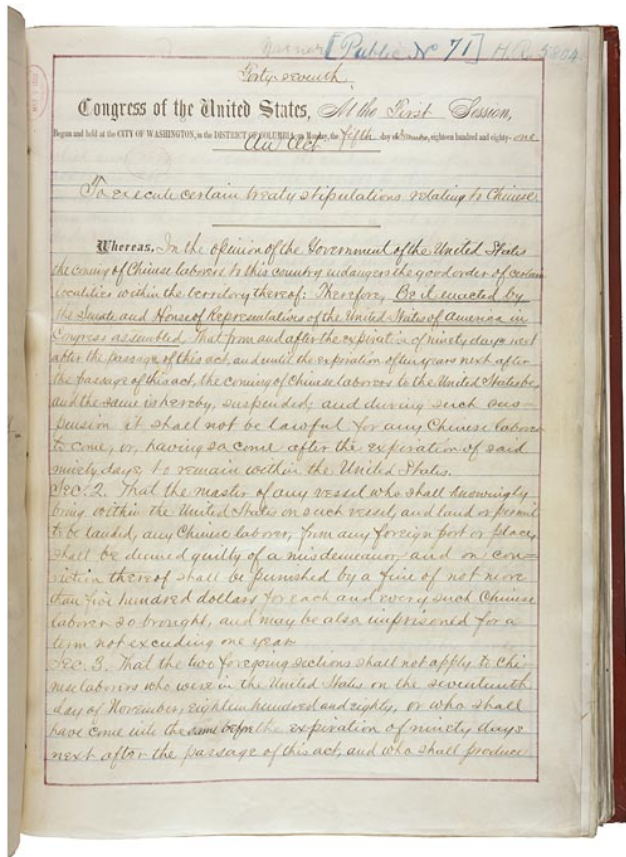 [Public No 71] H.R. 5804
Forty-seventh
Congress of the United States, At the First Session,
Begun and held at the CITY OF WASHINGTON, in the DISTRICT OF COLUMBIA, on Monday, the fifth day of December, eighteen hundred and eighty-one
An Act
To execute certain treaty stipulations relating to Chinese.
Whereas, In the opinion of the Government of the United States
the coming of Chinese laborers to this country endangers the good order of certain
localities within the territory thereof: Therefore, Be it enacted by
the Senate and House of Representatives of the United States of America in
Congress assembled, That from and after the expiration of ninety days next
after the passage of this act, and until the expiration of ten years next after
the passage of this act, the coming of Chinese laborers to the United States be,
and the same is hereby, suspended; and during such sus-
pension it shall not be lawful for any Chinese laborer
to come, or, having so come after the expiration of said
ninety days, to remain within the United States.
Sec. 2. That the master of any vessel who shall knowingly
bring within the United States on such vessel, and land or permit
to be landed, any Chinese laborer, from any foreign port or place,
shall be deemed guilty of a misdemeanor, and on con=
viction thereof shall be punished by a fine of not more
than five hundred dollars for each and every such Chinese
laborer so brought, and may be also imprisoned for a
term not exceeding one year.
Sec. 3. That the two foregoing sections shall not apply to Chi
nese laborers who were in the United States on the seventeenth
day of November, eighteen hundred and eighty, or who shall
have come into the same before the expiration of ninety days
next after the passage of this act, and who shall produce